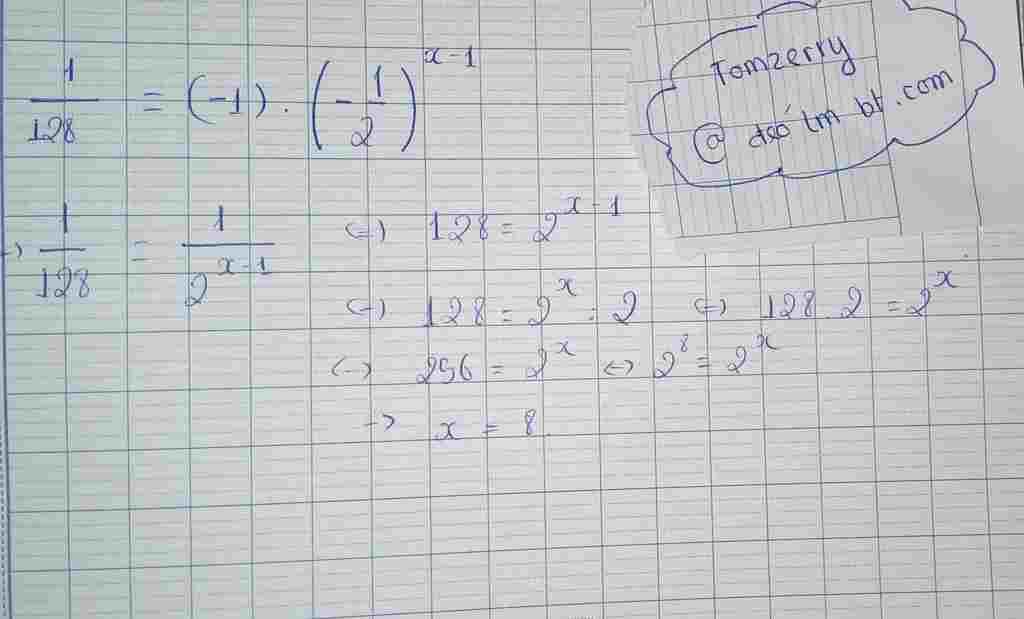 1/128 = (-1) . (-1/2)^(x-1)
Tomzerry
@ dsó lm bt . com
→ 1/128 = 1/2^(x-1) (=) 128 = 2^(x-1)
(=) 128 = 2^x : 2 (=) 128 . 2 = 2^x
<-> 256 = 2^x <-> 2^8 = 2^x
-> x = 8